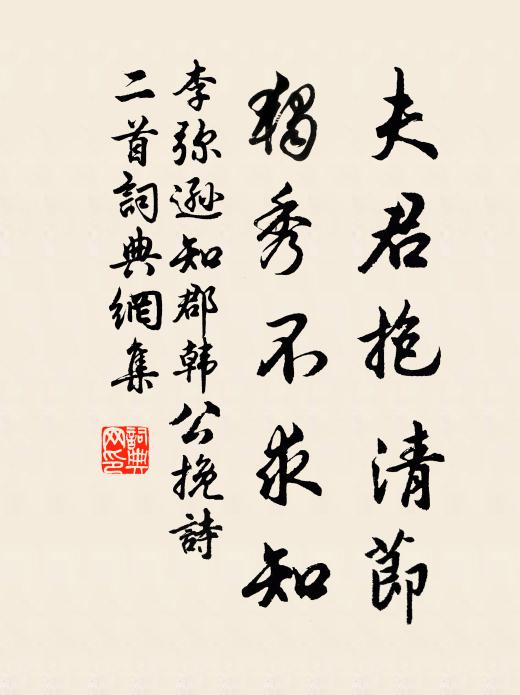 夫君抱清節
獨秀不求知
李弥遜知郡韩公挽詩
二首詞典網集
詞典
网印